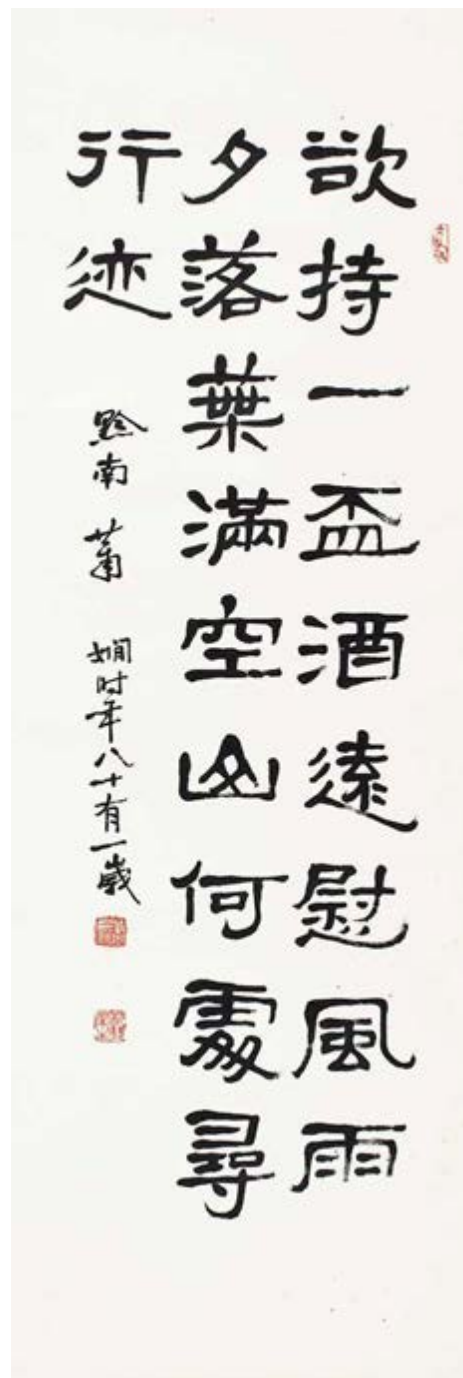 欲持一盃酒遠慰風雨
夕落葉滿空山何處尋
行迹
黔南蕭嫻时年八十有一歲